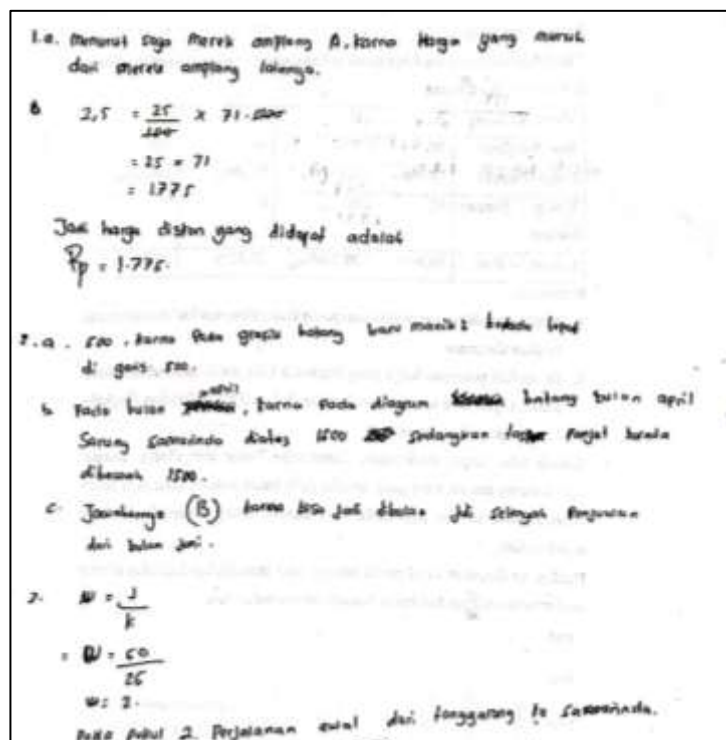 1.a. Menurut saya Merek amplang A, karna Harga yang murah
dari merek amplang lainnya.
B 2,5 = 25/100 x 71.000
= 25 x 71
= 1775
Jadi harga diskon yang didapat adalah
Rp = 1.775.
2.a. 500, karna pada grafik batang baru manik2 berada tepat
di garis 500.
b. Pada bulan april, karna pada diagram batang bulan april
Sarung Samarinda diatas 1500 sedangkan berada
dibawah 1500.
c. Jawabannya (B) karna bisa jadi dibulan juli setengah Penjualan
dari bulan juni.
3. W = J/k
= W = 50/25
W = 2.
Pada Pukul 2 Perjalanan awal dari tenggarong ke Samarinda.